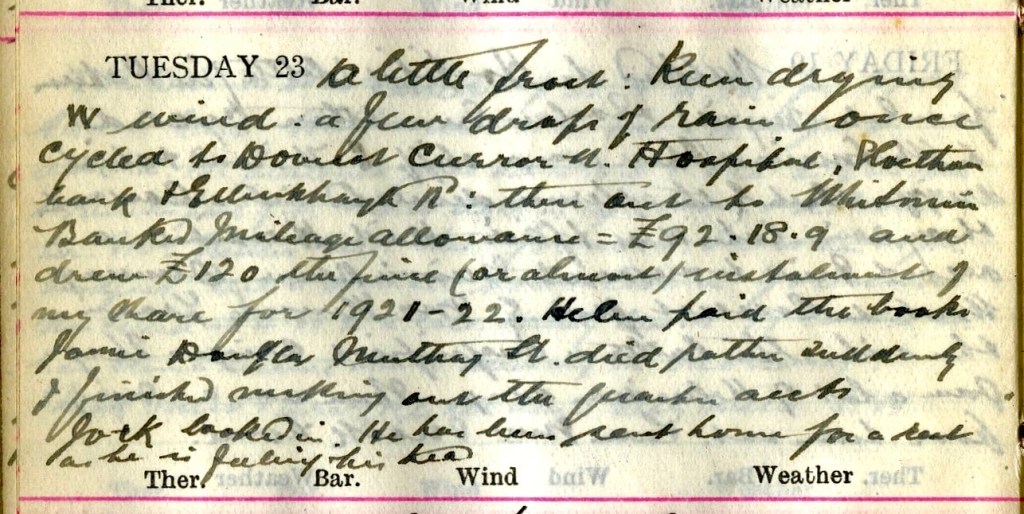 Ther. Bar. Wind Weather
TUESDAY 23 A little frost: Keen drying
W wind: a few drops of rain once
Cycled to Dovecot Curror St. Hospital,
bank & R: then out to
Banked Mileage allowance = £92.18.9 and
drew £120 the (or almost) instalment of
my share for 1921-22. Helen paid the books
Jamie Douglas St. died rather suddenly
I finished making out the quarter accts
Jock looked in. He has been sent home for a rest
as he is feeling his head
Ther. Bar. Wind Weather